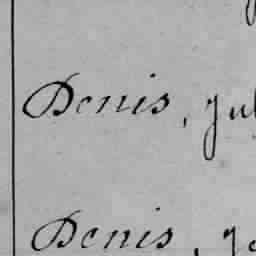 Denis, Jul
Denis, J